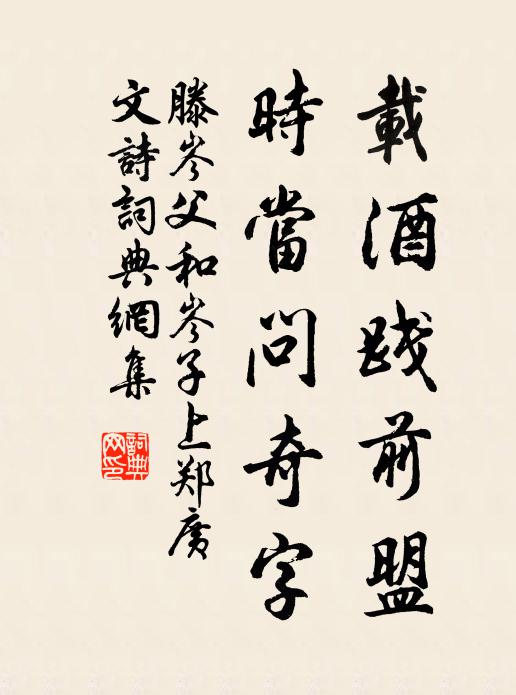 載酒踐前盟
時當問奇字
滕岑父和岑子上郑廣
文詩詞典網集
詞典
网印